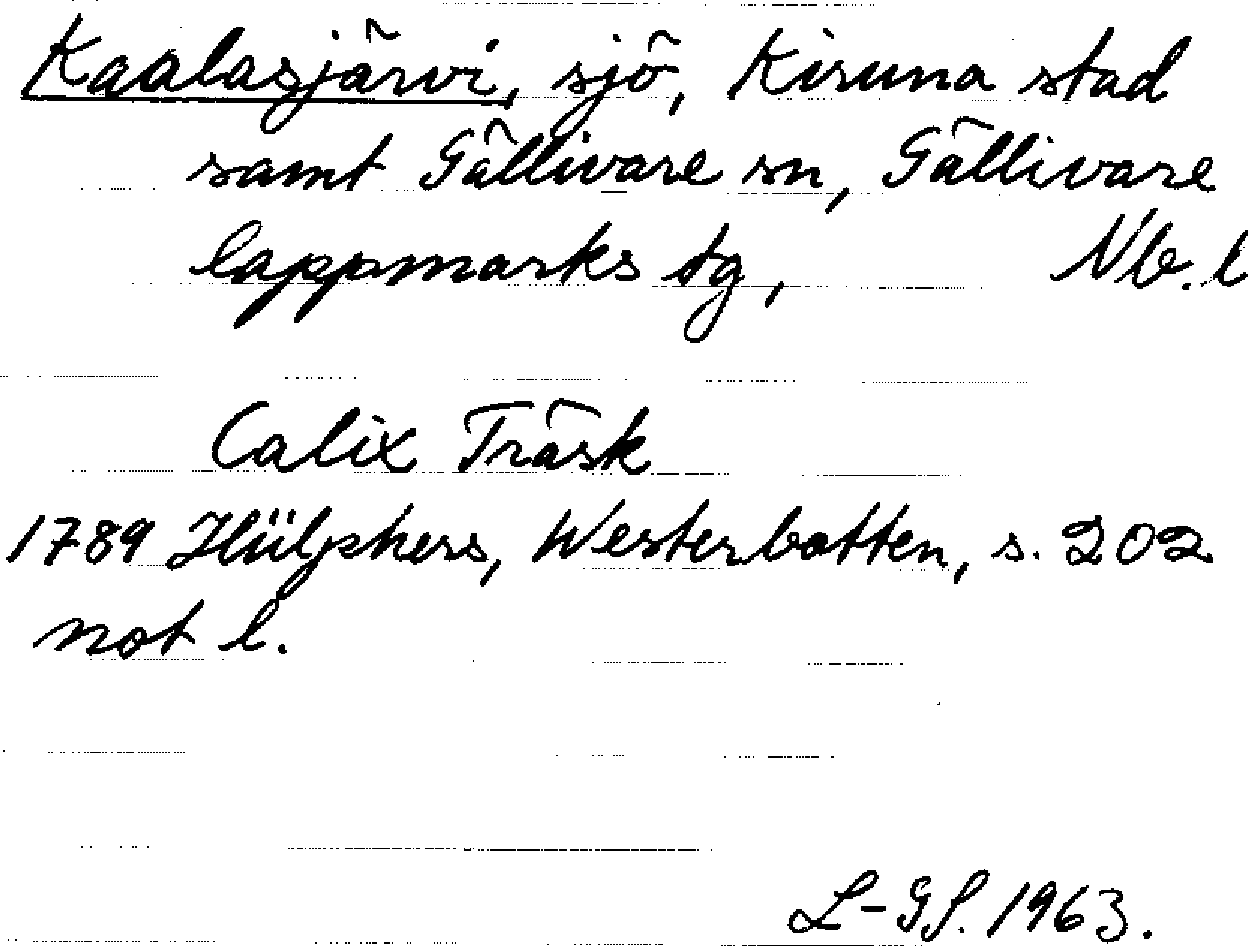 Kaalasjärvi, sjö, Kiruna stad
samt Gällivare sn, Gällivare
lappmarks tg, Nb. l
Calix Träsk
1789 Hülphers, Westerbotten, s. 202
not l.
L-GS. 1963.